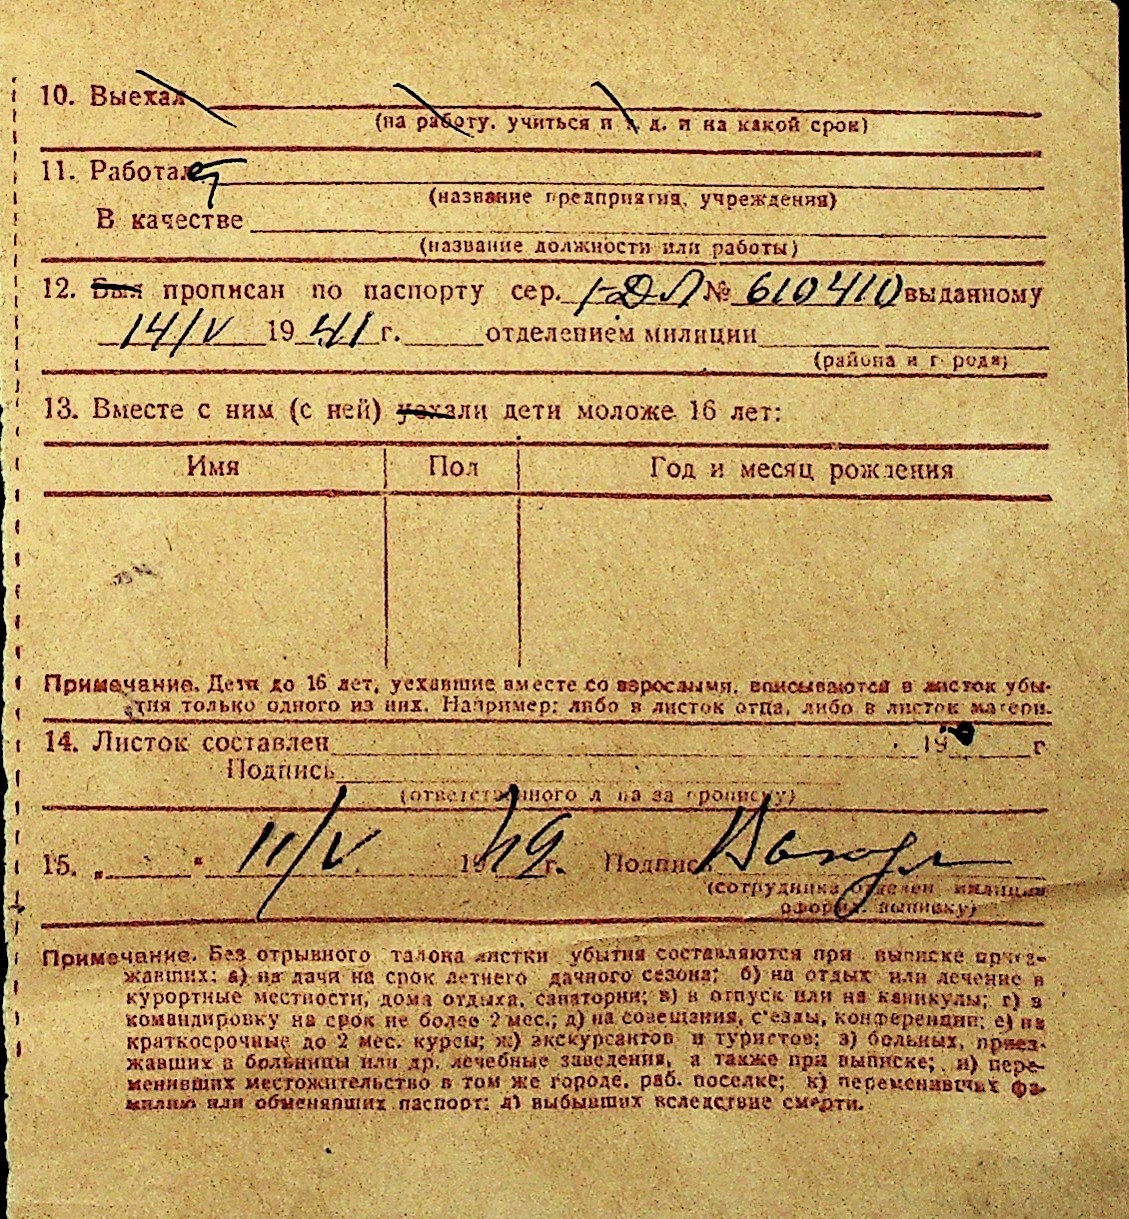 10. Выехал
(на работу, учиться и т. д. и на какой срок)
11. Работает
(название предприятия, учреждения)
В качестве
(название должности или работы)
12. Был прописан по паспорту сер. I-ДЛ № 610410 выданному
14/V 1941 г. отделением милиции
(района и города)
13. Вместе с ним (с ней) уехали дети моложе 16 лет:
Имя Пол Год и месяц рождения
Примечание. Дети до 16 лет, уехавшие вместе со взрослыми, вписываются в листок убы-
тия только одного из них. Например: либо в листок отца, либо в листок матери.
14. Листок составлен 19 г
Подпись
(ответственного л на за прописку)
15. „ " 11/V 1949 г. Подпись
(сотрудника отделен. милиции
оформ. выписку)
Примечание. Без отрывного талона листки убытия составляются при выписке приез-
жавших: а) на дачи на срок летнего дачного сезона; б) на отдых или лечение в
курортные местности, дома отдыха, санатории; в) в отпуск или на каникулы; г) в
командировку на срок не более 2 мес.; д) на совещания, с'езды, конференции; е) на
краткосрочные до 2 мес. курсы; ж) экскурсантов и туристов; з) больных, приез-
жавших в больницы или др. лечебные заведения, а также при выписке; и) пере-
менивших местожительство в том же городе, раб. поселке; к) переменивших фа-
милию или обменявших паспорт; л) выбывших вследствие смерти.